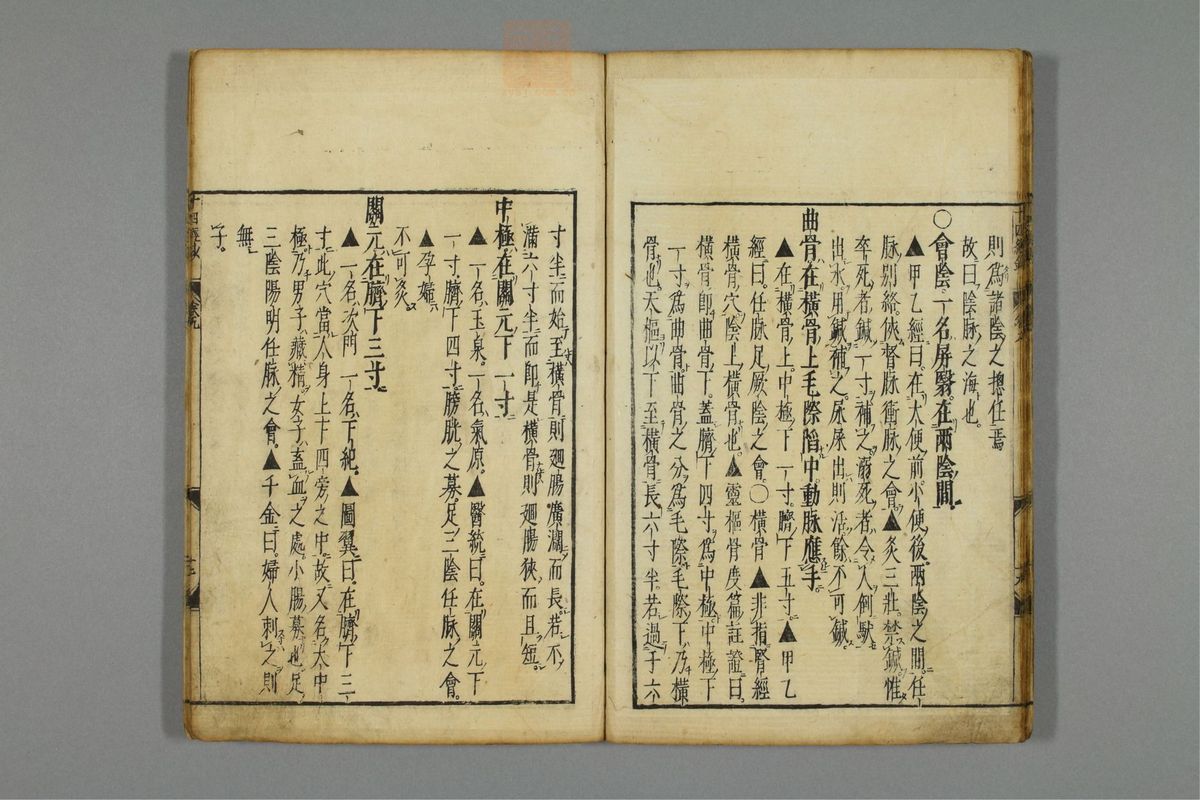 則為諸陰之揔任焉
故曰陰脉之海也。
○會陰一名屏翳在兩陰間
▲甲乙經曰在大便前小便後兩陰之間任
脉別絡俠督脉衝脉之會▲灸三壯禁鍼惟
卒死者鍼一寸補之溺死者令人倒馱
出水用鍼補之尿屎出則活餘不可鍼
曲骨在橫骨上毛際陷中動脉應手
▲在橫骨上中極下一寸臍下五寸▲甲乙
經曰任脉足厥陰之會○橫骨▲非指腎經
橫骨穴陰上橫骨也▲靈樞骨度篇註證曰
橫骨即曲骨下。蓋臍下四寸為中極中極下
一寸為曲骨曲骨之分為毛際毛際下乃橫
骨也天樞以下至橫骨長六寸半若過于六
寸半而始至橫骨則廻腸廣濶而長若不
滿六寸半而即是橫骨則廻腸狹而且短。
中極在關元下一寸
▲一名玉泉。一名氣原。▲醫統曰。在關元下
一寸。臍下四寸。膀胱之募。足三陰任脉之會。
▲孕婦
不可灸
關元在臍下三寸
▲一名次門一名下紀。▲圖翼曰。在臍下三
寸此穴當人身上下四旁之中。故又名大中
極乃男子藏精女子畜血之處小腸募也足
三陰陽明任脉之會。▲千金曰。婦人刺之則
無
子。